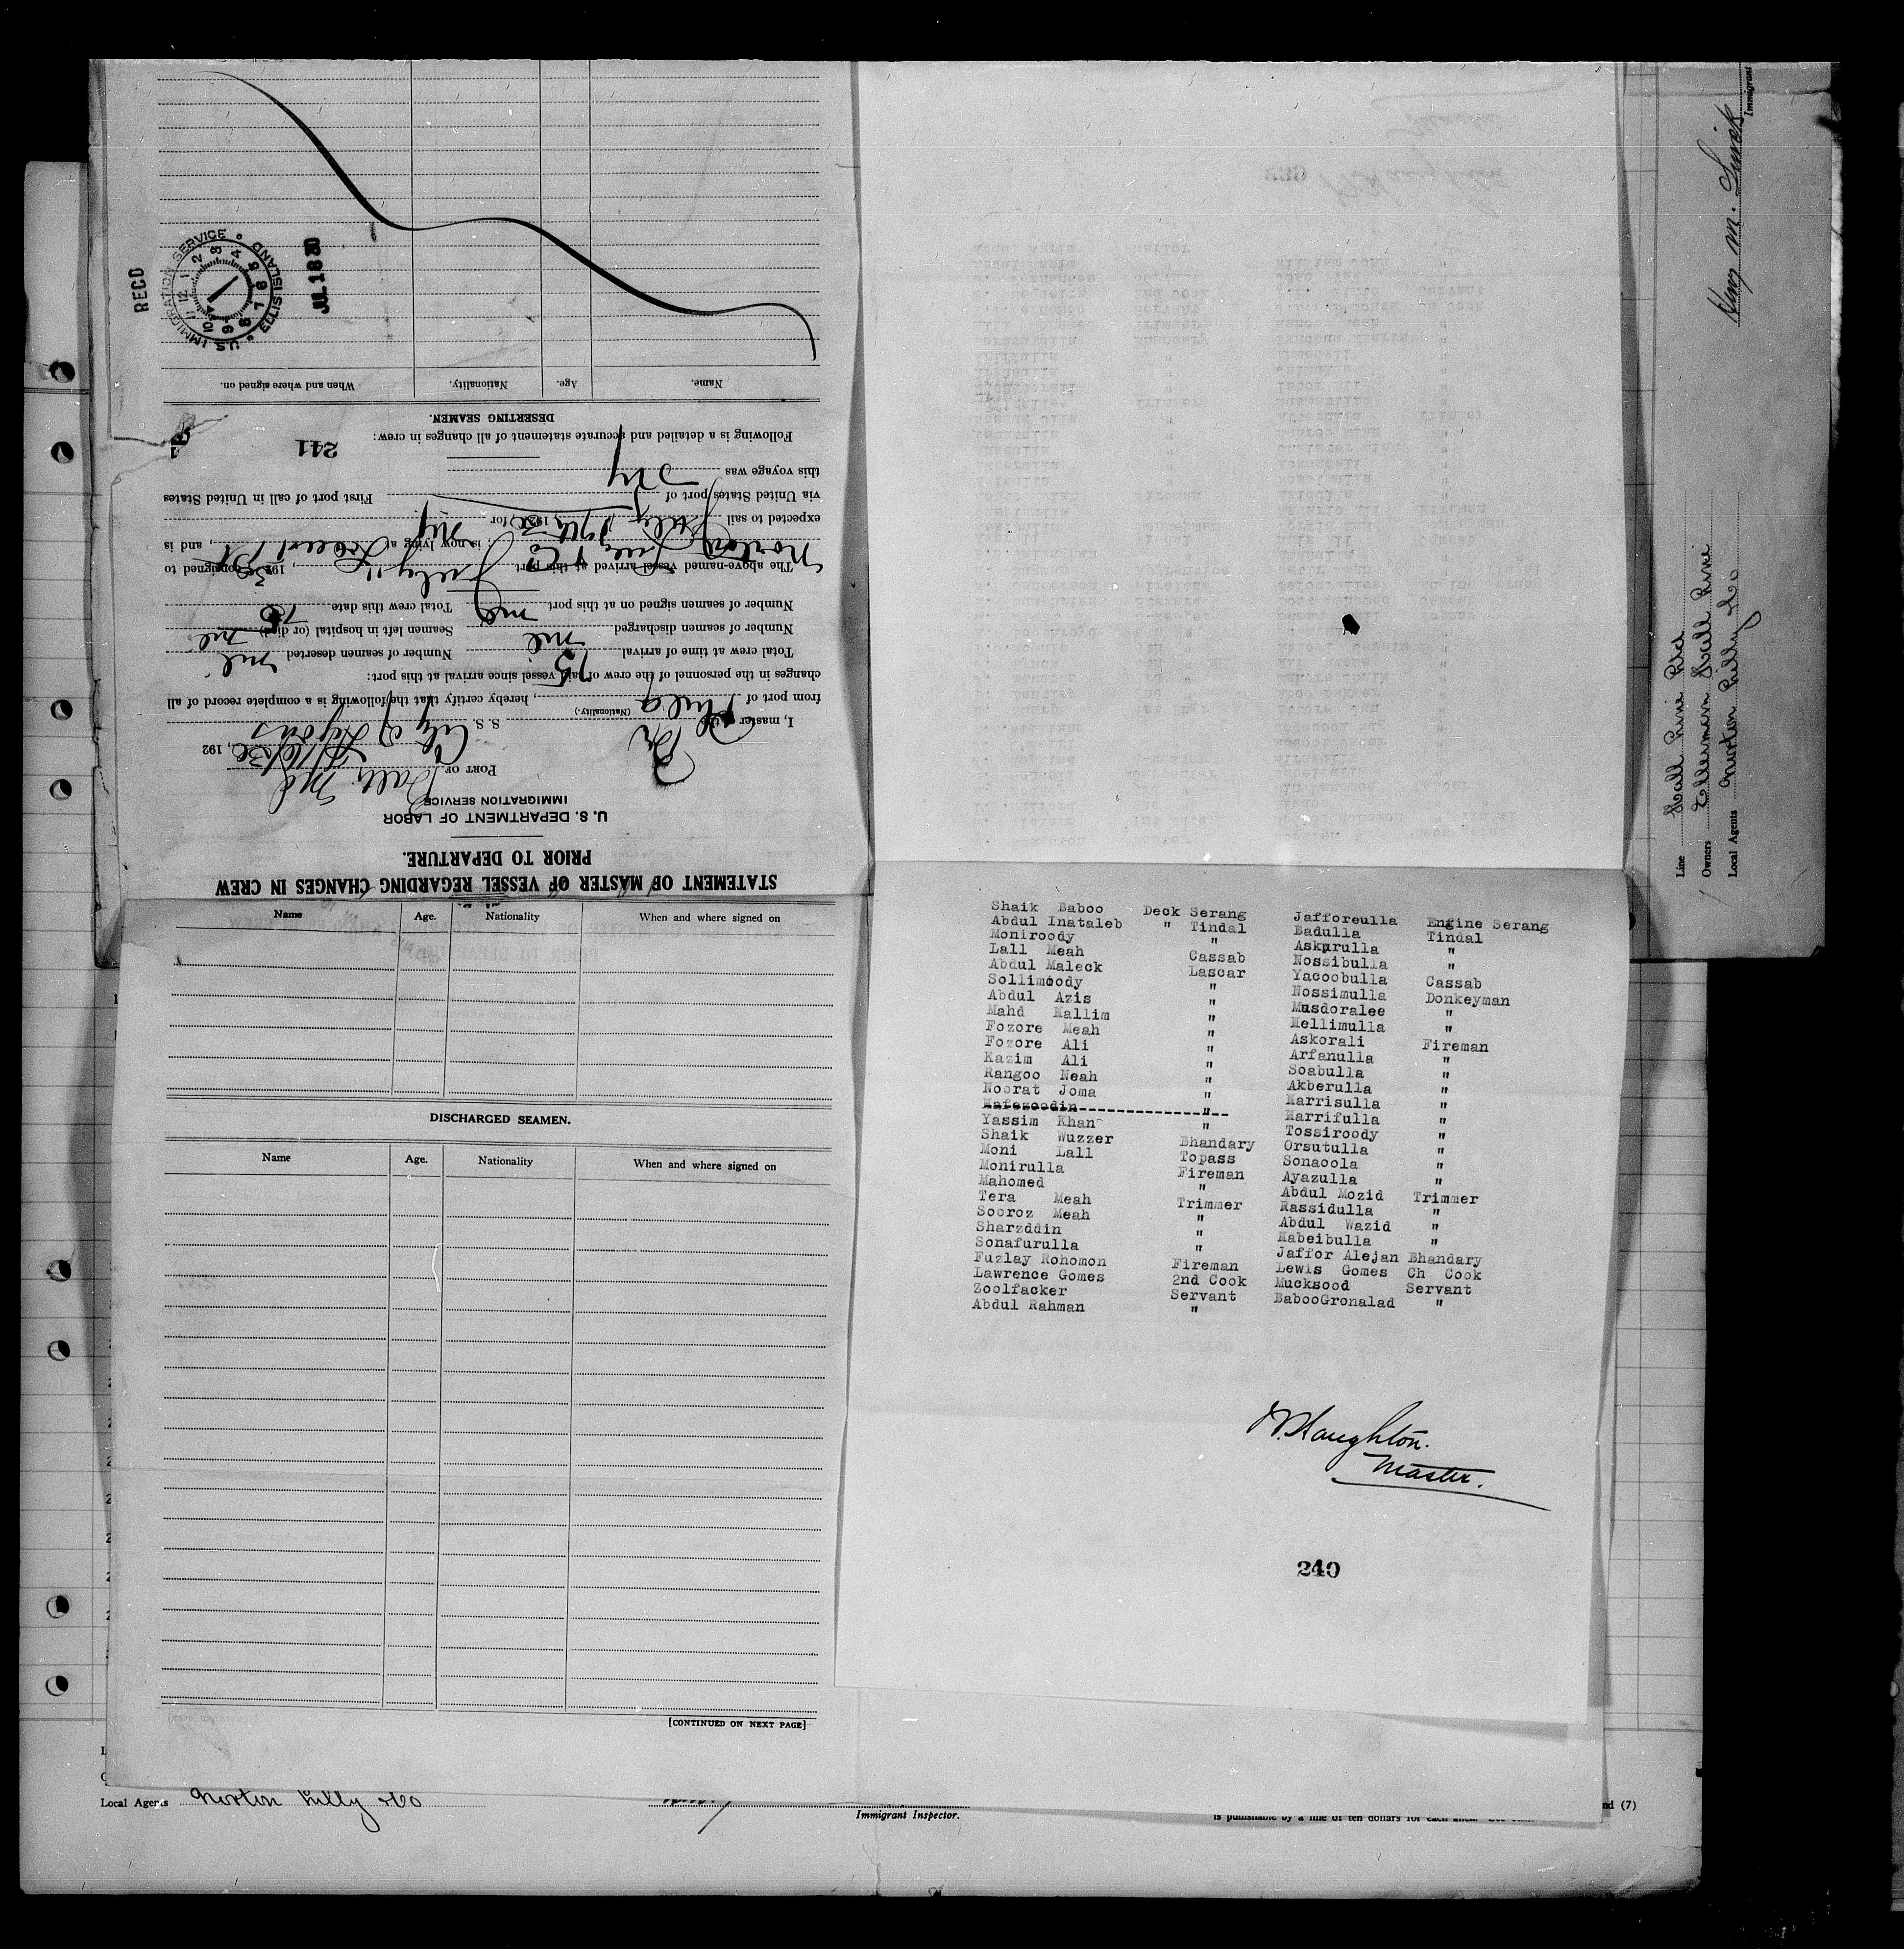 STATEMENT OF MASTER OF VESSEL REGARDING CHANGES IN CREW
PRIOR TO DEPARTURE.
U. S. DEPARTMENT OF LABOR
IMMIGRATION SERVICE
PORT OF Balto Md
, 192
I, master of the S. S. City of
(Nationality.)
from port of Phila , hereby certify that the following is a complete record of all
changes in the personnel of the crew of said vessel since arrival at this port:
Total crew at time of arrival 75 Number of seamen deserted nil
Number of seamen discharged nil Seamen left in hospital (or died) nil
Number of seamen signed on at this port Total crew this date 75
The above-named vessel arrived at this port July 192 consigned to
Norton Lilly & Co ; is now lying at Locust Pt , and is
expected to sail July 17th , 192 , for NY
via United States port of First port of call in United States
this voyage was NY
Following is a detailed and accurate statement of all changes in crew:
241
DESERTING SEAMEN.
Name. Age. Nationality. When and where signed on.
RECD
U.S. IMMIGRATION SERVICE • ELLIS ISLAND •
JUL 18 30
Name Age. Nationality When and where signed on
DISCHARGED SEAMEN.
Name Age. Nationality When and where signed on
[CONTINUED ON NEXT PAGE]
Shaik Baboo Deck Serang Jafforeulla Engine Serang
Abdul Inataleb " Tindal Badulla Tindal
Moniroody " Askurulla "
Lall Meah Cassab Nossibulla "
Abdul Maleck Lascar Yacoobulla Cassab
Sollimoody " Nossimulla Donkeyman
Abdul Azis " Musdoralee "
Mahd Mallim " Mellimulla "
Fozore Meah " Askorali Fireman
Fozore Ali " Arfanulla "
Kazim Ali " Soabulla "
Rangoo Neah " Akberulla "
Noorat Joma " Marrisulla "
Mafezoodin " Marrifulla "
Yassim Khan " Tossiroody "
Shaik Wuzzer Bhandary Orsutulla "
Moni Lall Topass Sonaoola "
Monirulla Fireman Ayazulla "
Mahomed " Abdul Mozid Trimmer
Tera Meah Trimmer Rassidulla "
Sooroz Meah " Abdul Wazid "
Sharzddin " Habeibulla "
Sonafurulla " Jaffor Alejan Bhandary
Fuzlay Rohomon Fireman Lewis Gomes Ch Cook
Lawrence Gomes 2nd Cook Mucksood Servant
Zoolfacker Servant BabooGronalad "
Abdul Rahman "
Naughton.
Master.
240
Local Agents Norton Lilly & Co
Immigrant Inspector.
is punishable by a fine of ten dollars for each alien.
nd (7)
Line Hall Line Ltd
Owners Ellerman Hall Line
Local Agents Norton Lilly & Co
Immigrant